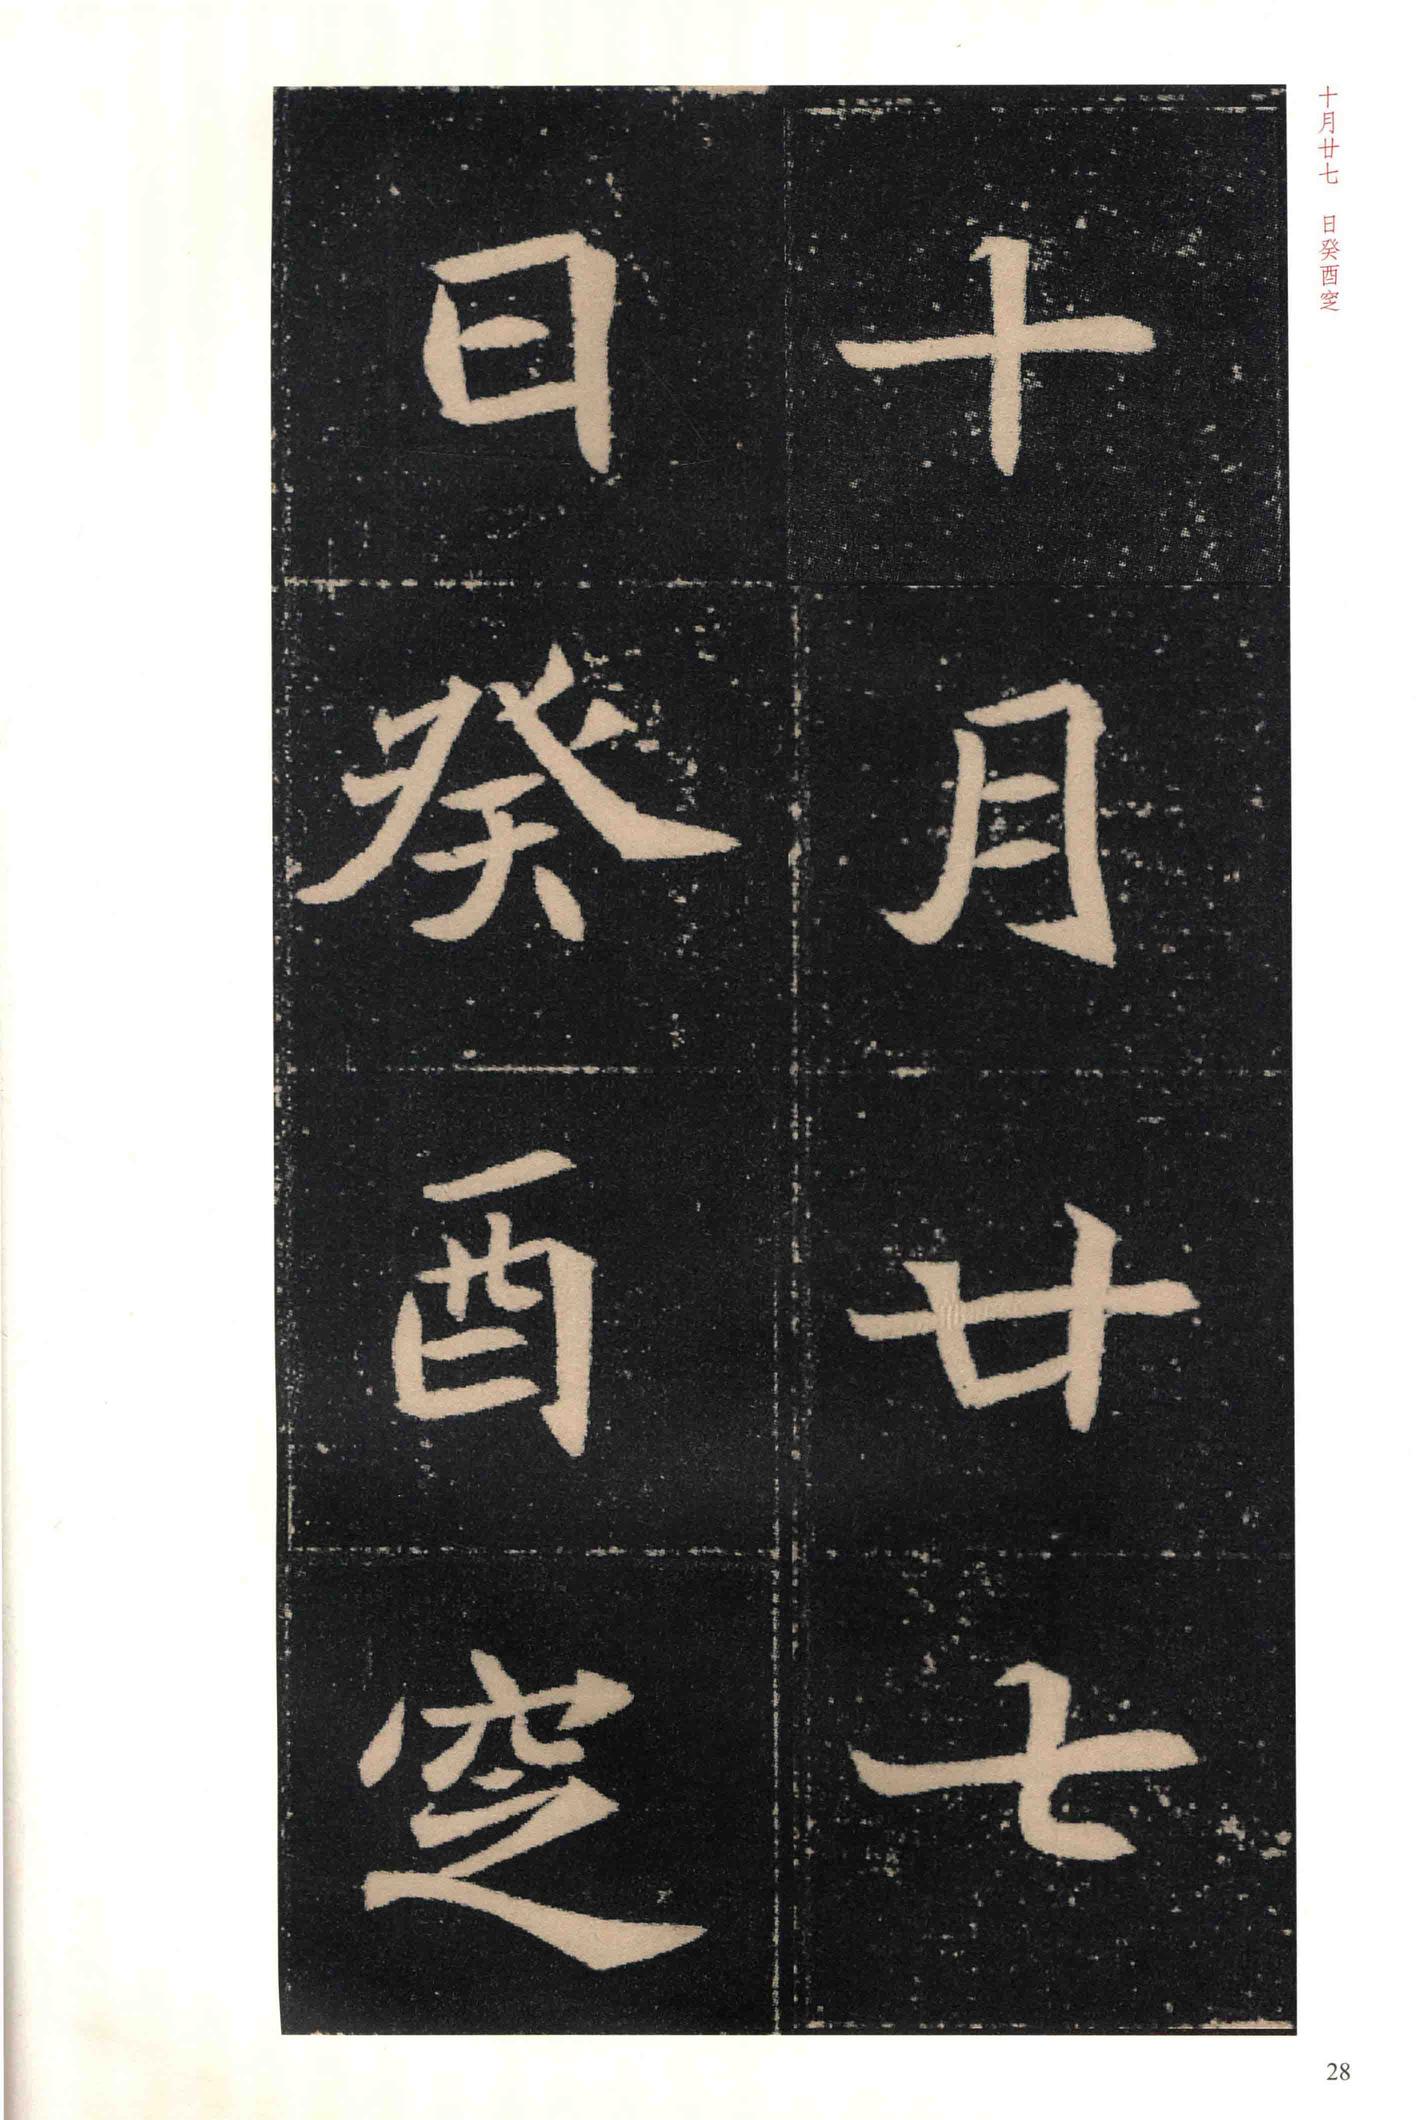 十月廿七
日癸酉窆
十月廿七　日癸酉窆
28